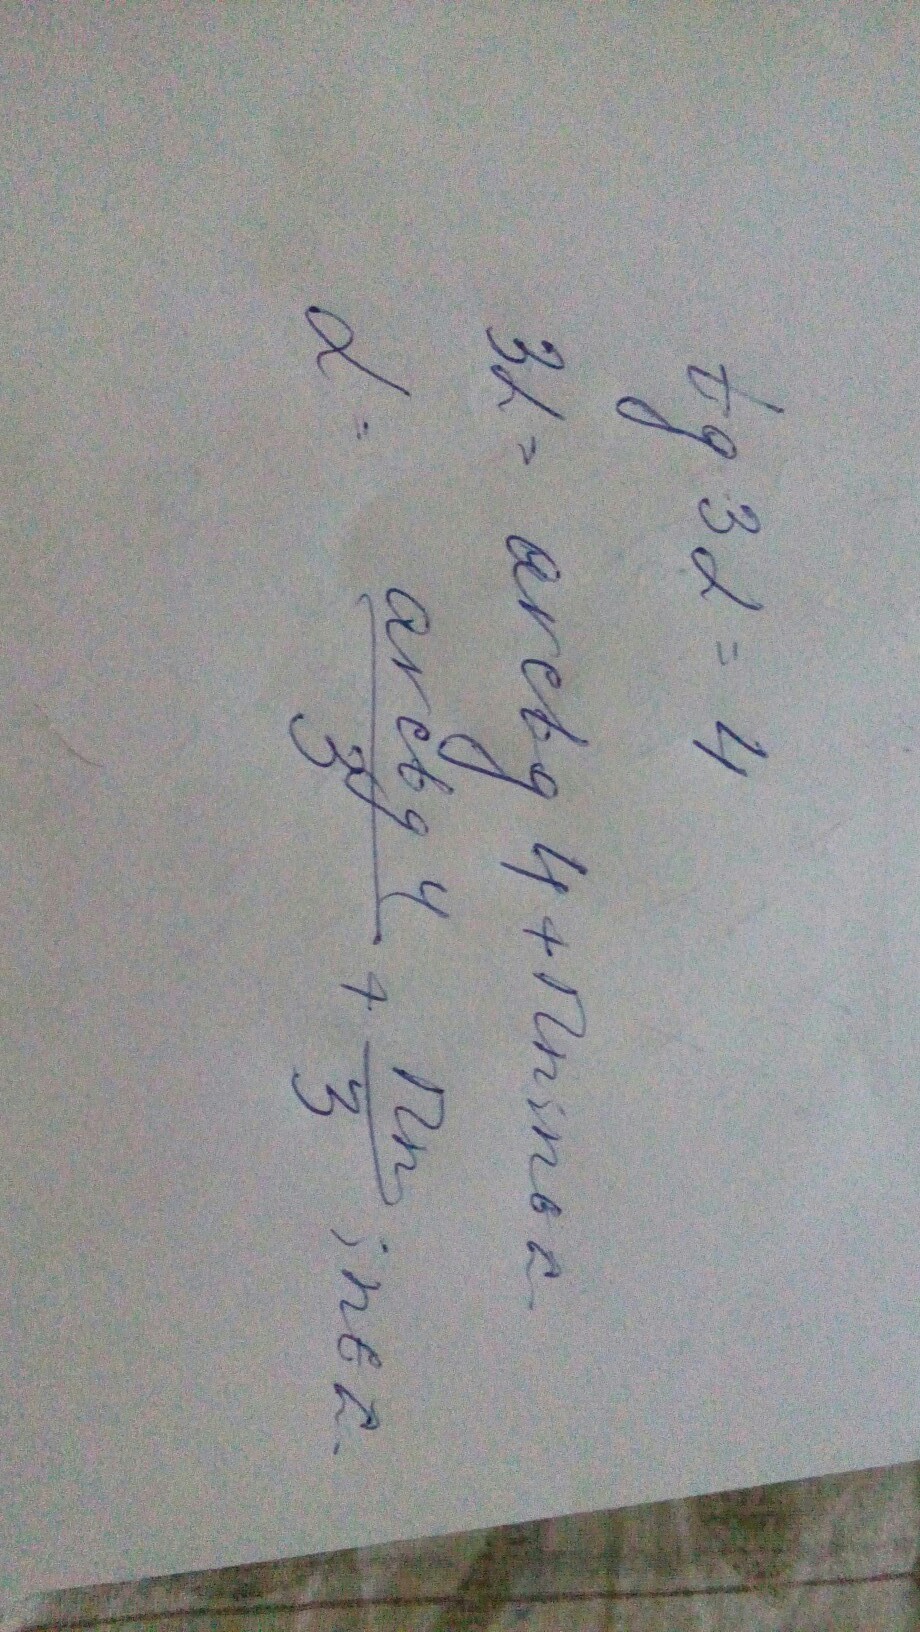 tg 3α = 4
3α = arctg 4 + Πn; n ∈ z.
α = arctg 4 / 3 + Πn / 3 ; n ∈ z.